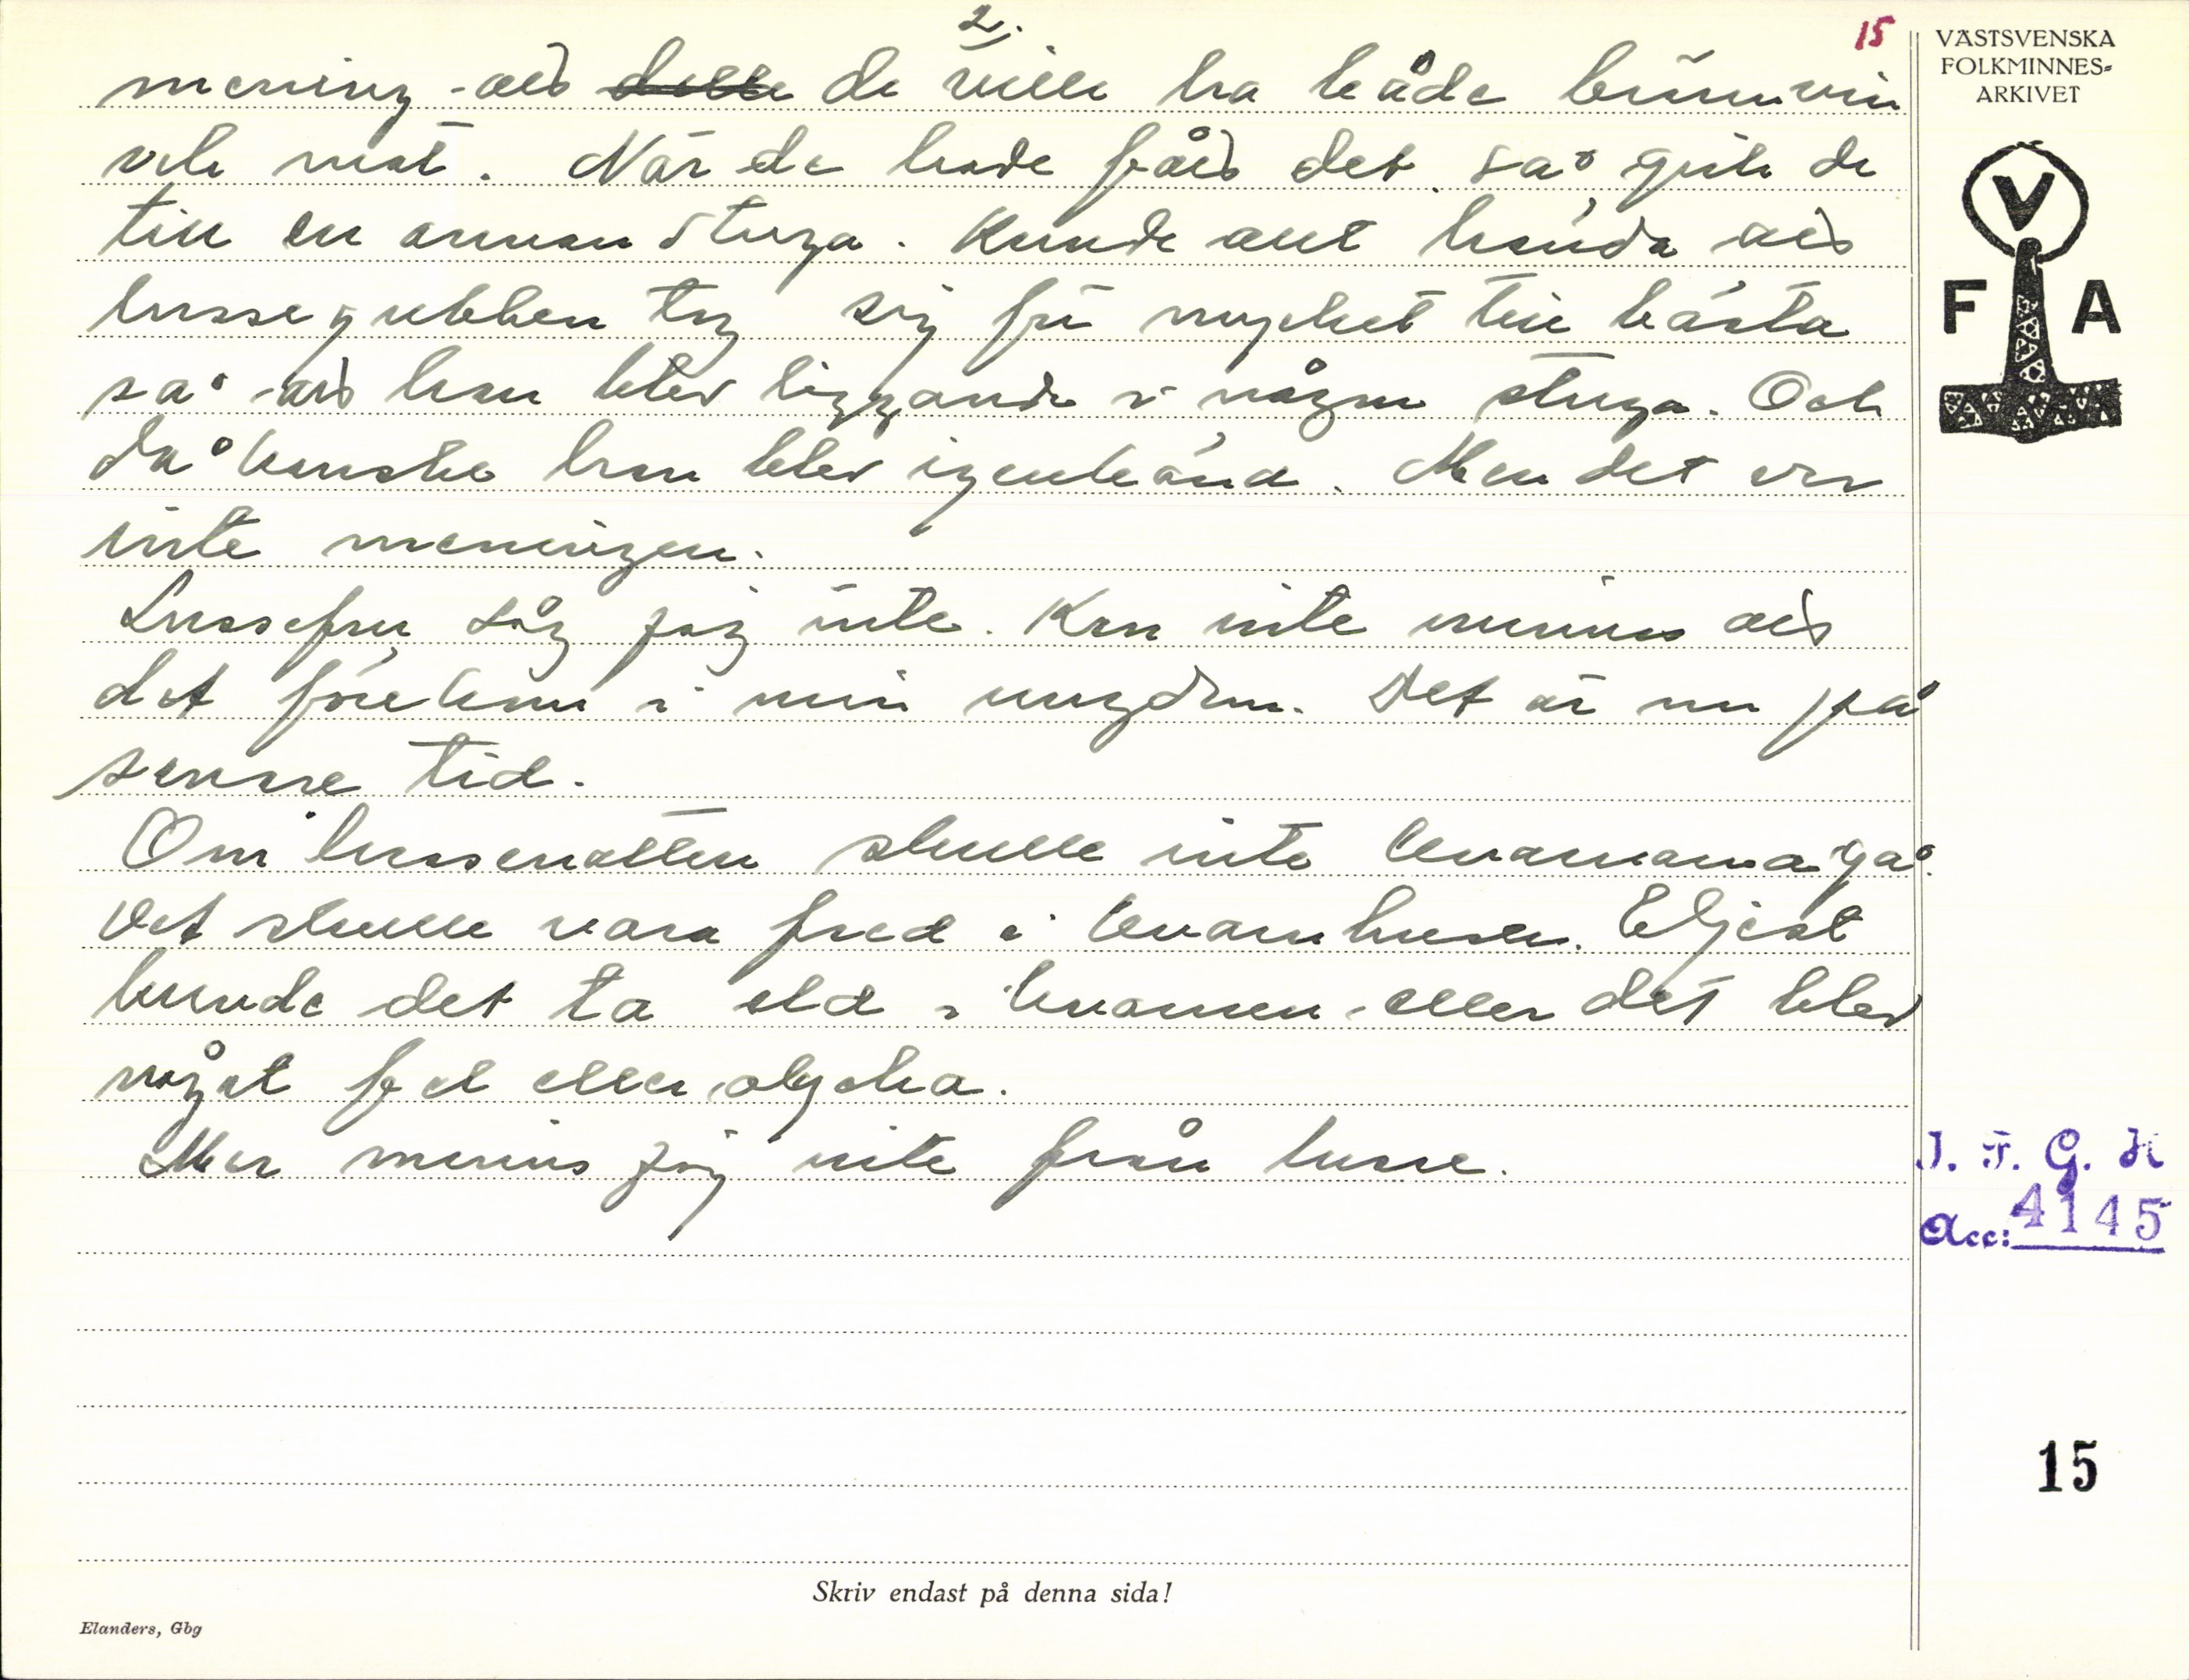 2.
15
mening - att de ville ha både brännvin
och mat. När de hade fått det så gick de
till en annan stuga. Kunde allt hända att
lussegubben tog sig för mycket till bästa
så att han blev liggande i någon stuga. Och
då kanske han blev igenkänd. Men det var
inte meningen.
Lussefru såg jag inte. Kan inte minnas att
det förekom i min ungdom. Det är nu på
senare tid.
Om lussenatten skulle inte kvarnarna gå.
Det skulle vara fred i kvarnhusen. Eljest
kunde det ta eld i kvarnen - eller det blev
något fel eller olycka.
Mer minns jag inte från lusse.
VÄSTSVENSKA
FOLKMINNES-
ARKIVET
V
F A
I. F. G. H
Acc: 4145
15
Skriv endast på denna sida!
Elanders, Gbg